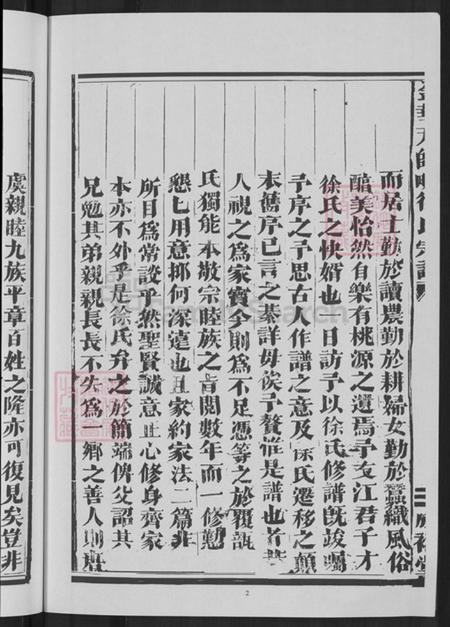 而居士勤於讀農勤於耕婦女勤於蠶織風俗
醕美怡然自樂有桃源之遺焉予友江君子才
徐氏之快婿也一日訪予以徐氏修譜既竣囑
予序之予思古人作譜之意及徐氏遷移之顛
末舊序已言之綦詳毋俟予贅惟是譜也者昔
人視之為家寶今則為不足憑等之於覆瓿
氏獨能本敬宗睦族之旨閱數年而一修勤
懇已用意抑何深遠也且家約家法二篇非
所目為常談乎然聖賢誠意正心修身齊家
本亦不外乎是徐氏弁之於簡端俾父詔其
兄勉其弟親親長長不失為一鄉之善人則唐
虞親睦九族平章百姓之隆亦可復見矣豈非
徐氏宗譜
2